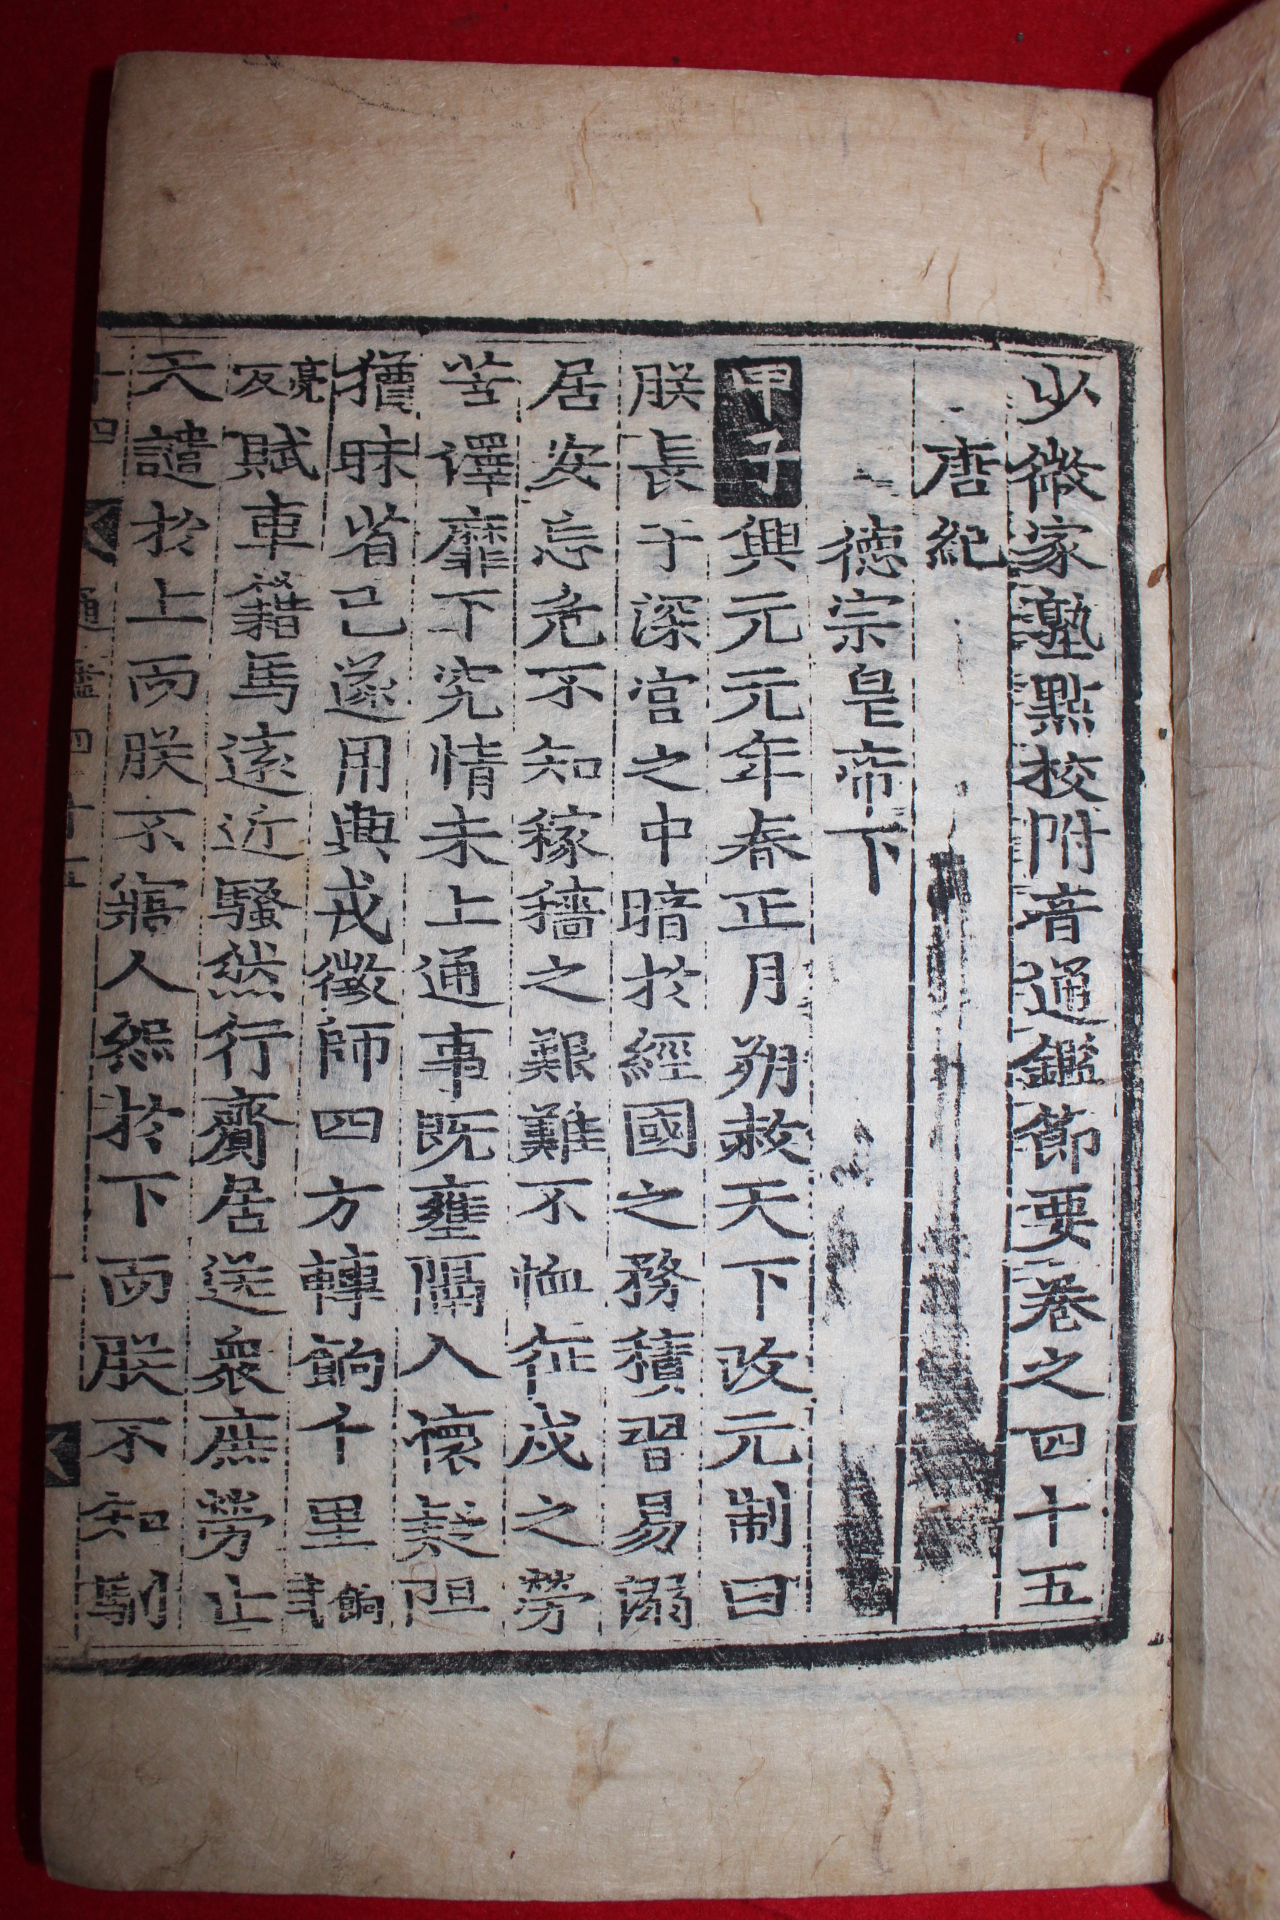 少微家塾點校附音通鑑節要卷之四十五
唐紀
德宗皇帝下
甲子興元元年春正月朔赦天下改元制曰
朕長于深宮之中暗於經國之務積習易溺
居安忘危不知稼穡之艱難不恤征戍之勞
苦澤靡下究情未上通事旣壅隔入懷疑阻
猶昧省己遂用興戎徵師四方轉餉千里餉式
亮反賦車籍馬遠近騷然行齎居送衆庶勞止
天譴於上而朕不寤人怨於下而朕不知馴
通鑑四十五